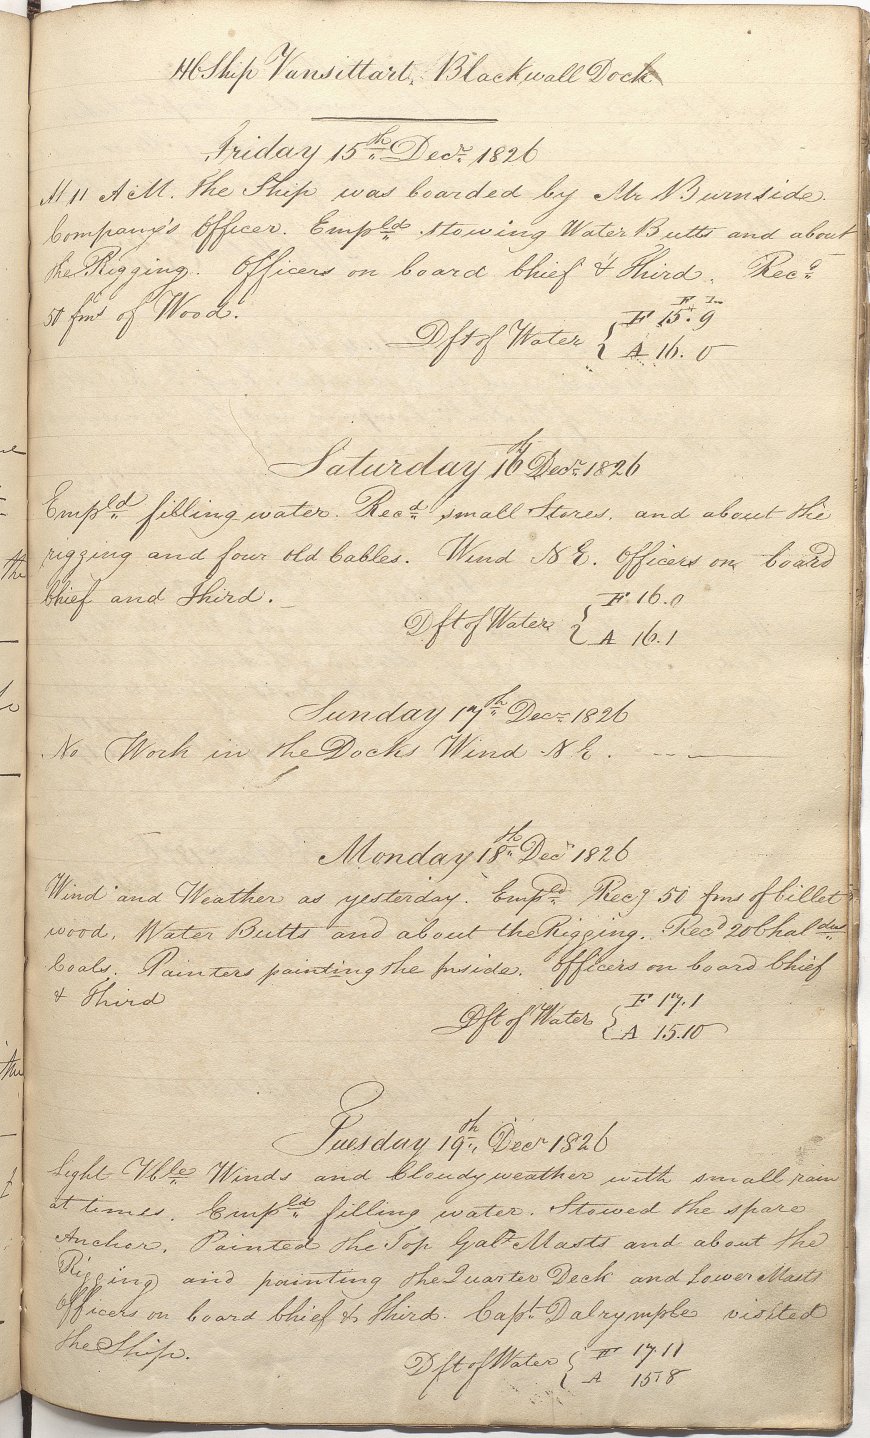 HC Ship Vansittart, Blackwall Dock
Friday 15th Decr 1826
At 11 AM. The Ship was boarded by Mr Burnside
Company's Officer. Empld stowing Water Butts and about
the Rigging. Officers on board Chief & Third. Recd
50 fms of Wood.
F In
Dft of Water { F 15.9
A 16.0
Saturday 16th Decr 1826
Empld filling water. Recd small Stores. and about the
rigging and four old Cables. Wind NE. Officers on board
Chief and Third.
Dft of Water { F 16.0
A 16.1
Sunday 17th Decr 1826
No Work in the Docks Wind NE.
Monday 18th Decr 1826
Wind and Weather as yesterday. Empld Recg 50 fms of billet
wood, Water Butts and about the Rigging. Recd 20 Chaldns
Coals. Painters painting the Inside. Officers on board Chief
& Third
Dft of Water { F 17.1
A 15.10
Tuesday 19th Decr 1826
Light Vble Winds and Cloudy weather with small rain
at times. Empld filling water. Stowed the spare
Anchor. Painted the Top Galt Masts and about the
Rigging and painting the Quarter Deck and Lower Masts
Officers on board Chief & Third. Capt Dalrymple visited
the Ship.
Dft of Water { F 17.11
A 15.8